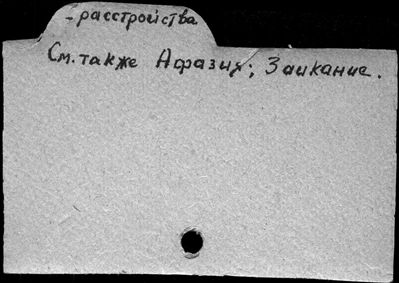 -расстройства
См. также Афазия; Заикание.